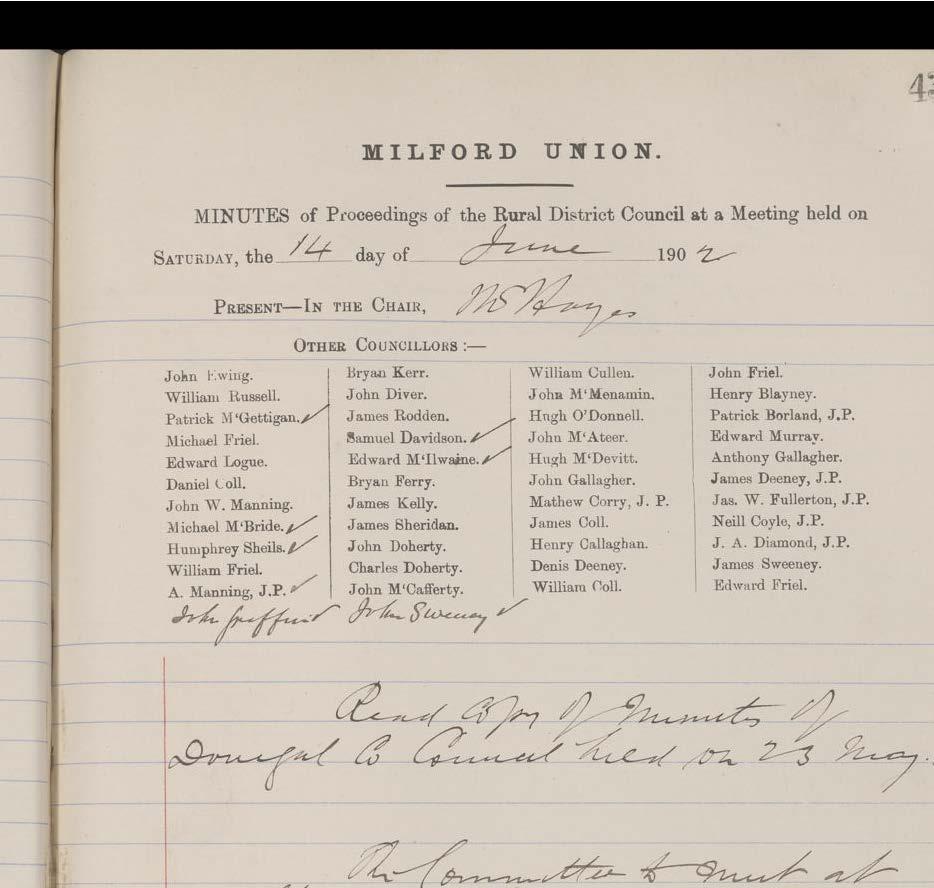 43
MILFORD UNION.
MINUTES of Proceedings of the Rural District Council at a Meeting held on
SATURDAY, the 14 day of June 1902
PRESENT—IN THE CHAIR, Mr Hayes
OTHER COUNCILLORS :—
John Ewing.
William Russell.
Patrick M‘Gettigan.
Michael Friel.
Edward Logue.
Daniel Coll.
John W. Manning.
Michael M‘Bride.
Humphrey Sheils.
William Friel.
A. Manning, J.P.
John
Bryan Kerr.
John Diver.
James Rodden.
Samuel Davidson.
Edward M‘Ilwaine.
Bryan Ferry.
James Kelly.
James Sheridan.
John Doherty.
Charles Doherty.
John M‘Cafferty.
John Sweeney
William Cullen.
John M‘Menamin.
Hugh O’Donnell.
John M‘Ateer.
Hugh M‘Devitt.
John Gallagher.
Mathew Corry, J. P.
James Coll.
Henry Callaghan.
Denis Deeney.
William Coll.
John Friel.
Henry Blayney.
Patrick Borland, J.P.
Edward Murray.
Anthony Gallagher.
James Deeney, J.P.
Jas. W. Fullerton, J.P.
Neill Coyle, J.P.
J. A. Diamond, J.P.
James Sweeney.
Edward Friel.
Read Copy of Minutes of
Donegal Co Council held on 23 May.
The Committee to meet at